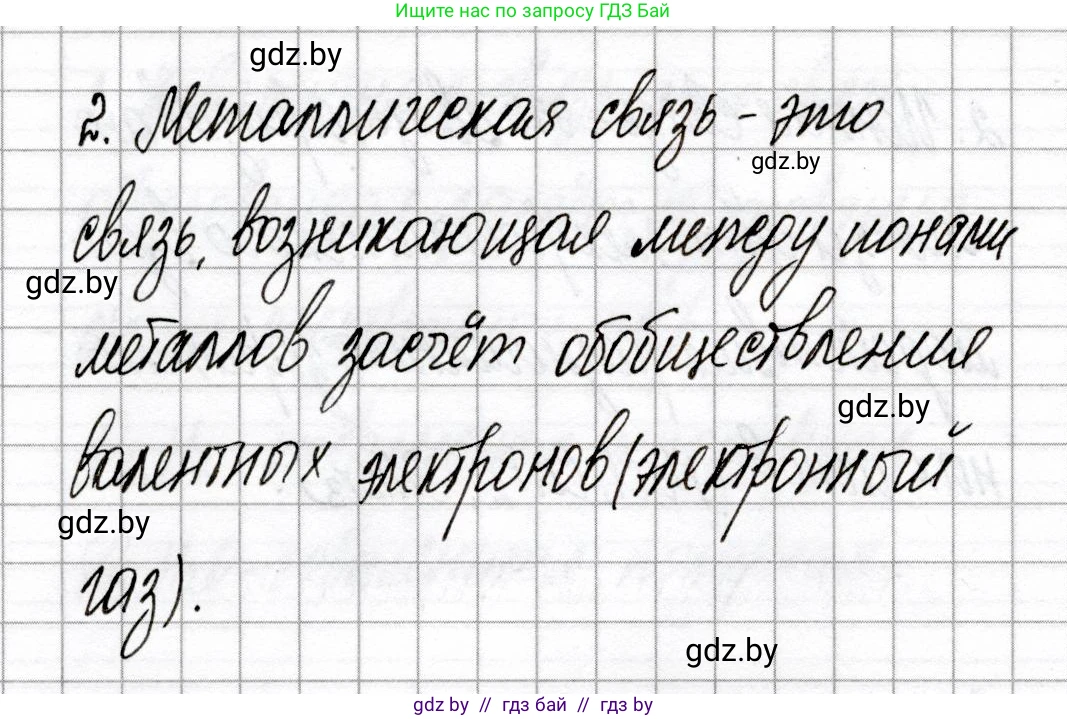 Ищите нас по запросу ГДЗ Бай
gdz.by
2. Металлическая связь - это
gdz.by
связь, возникающая между ионами
gdz.by
металлов засчёт обобществления
gdz.by
валентных электронов (электронный
gdz.by
газ).
gdz.by
gdz.by // гдз бай // гдз.by